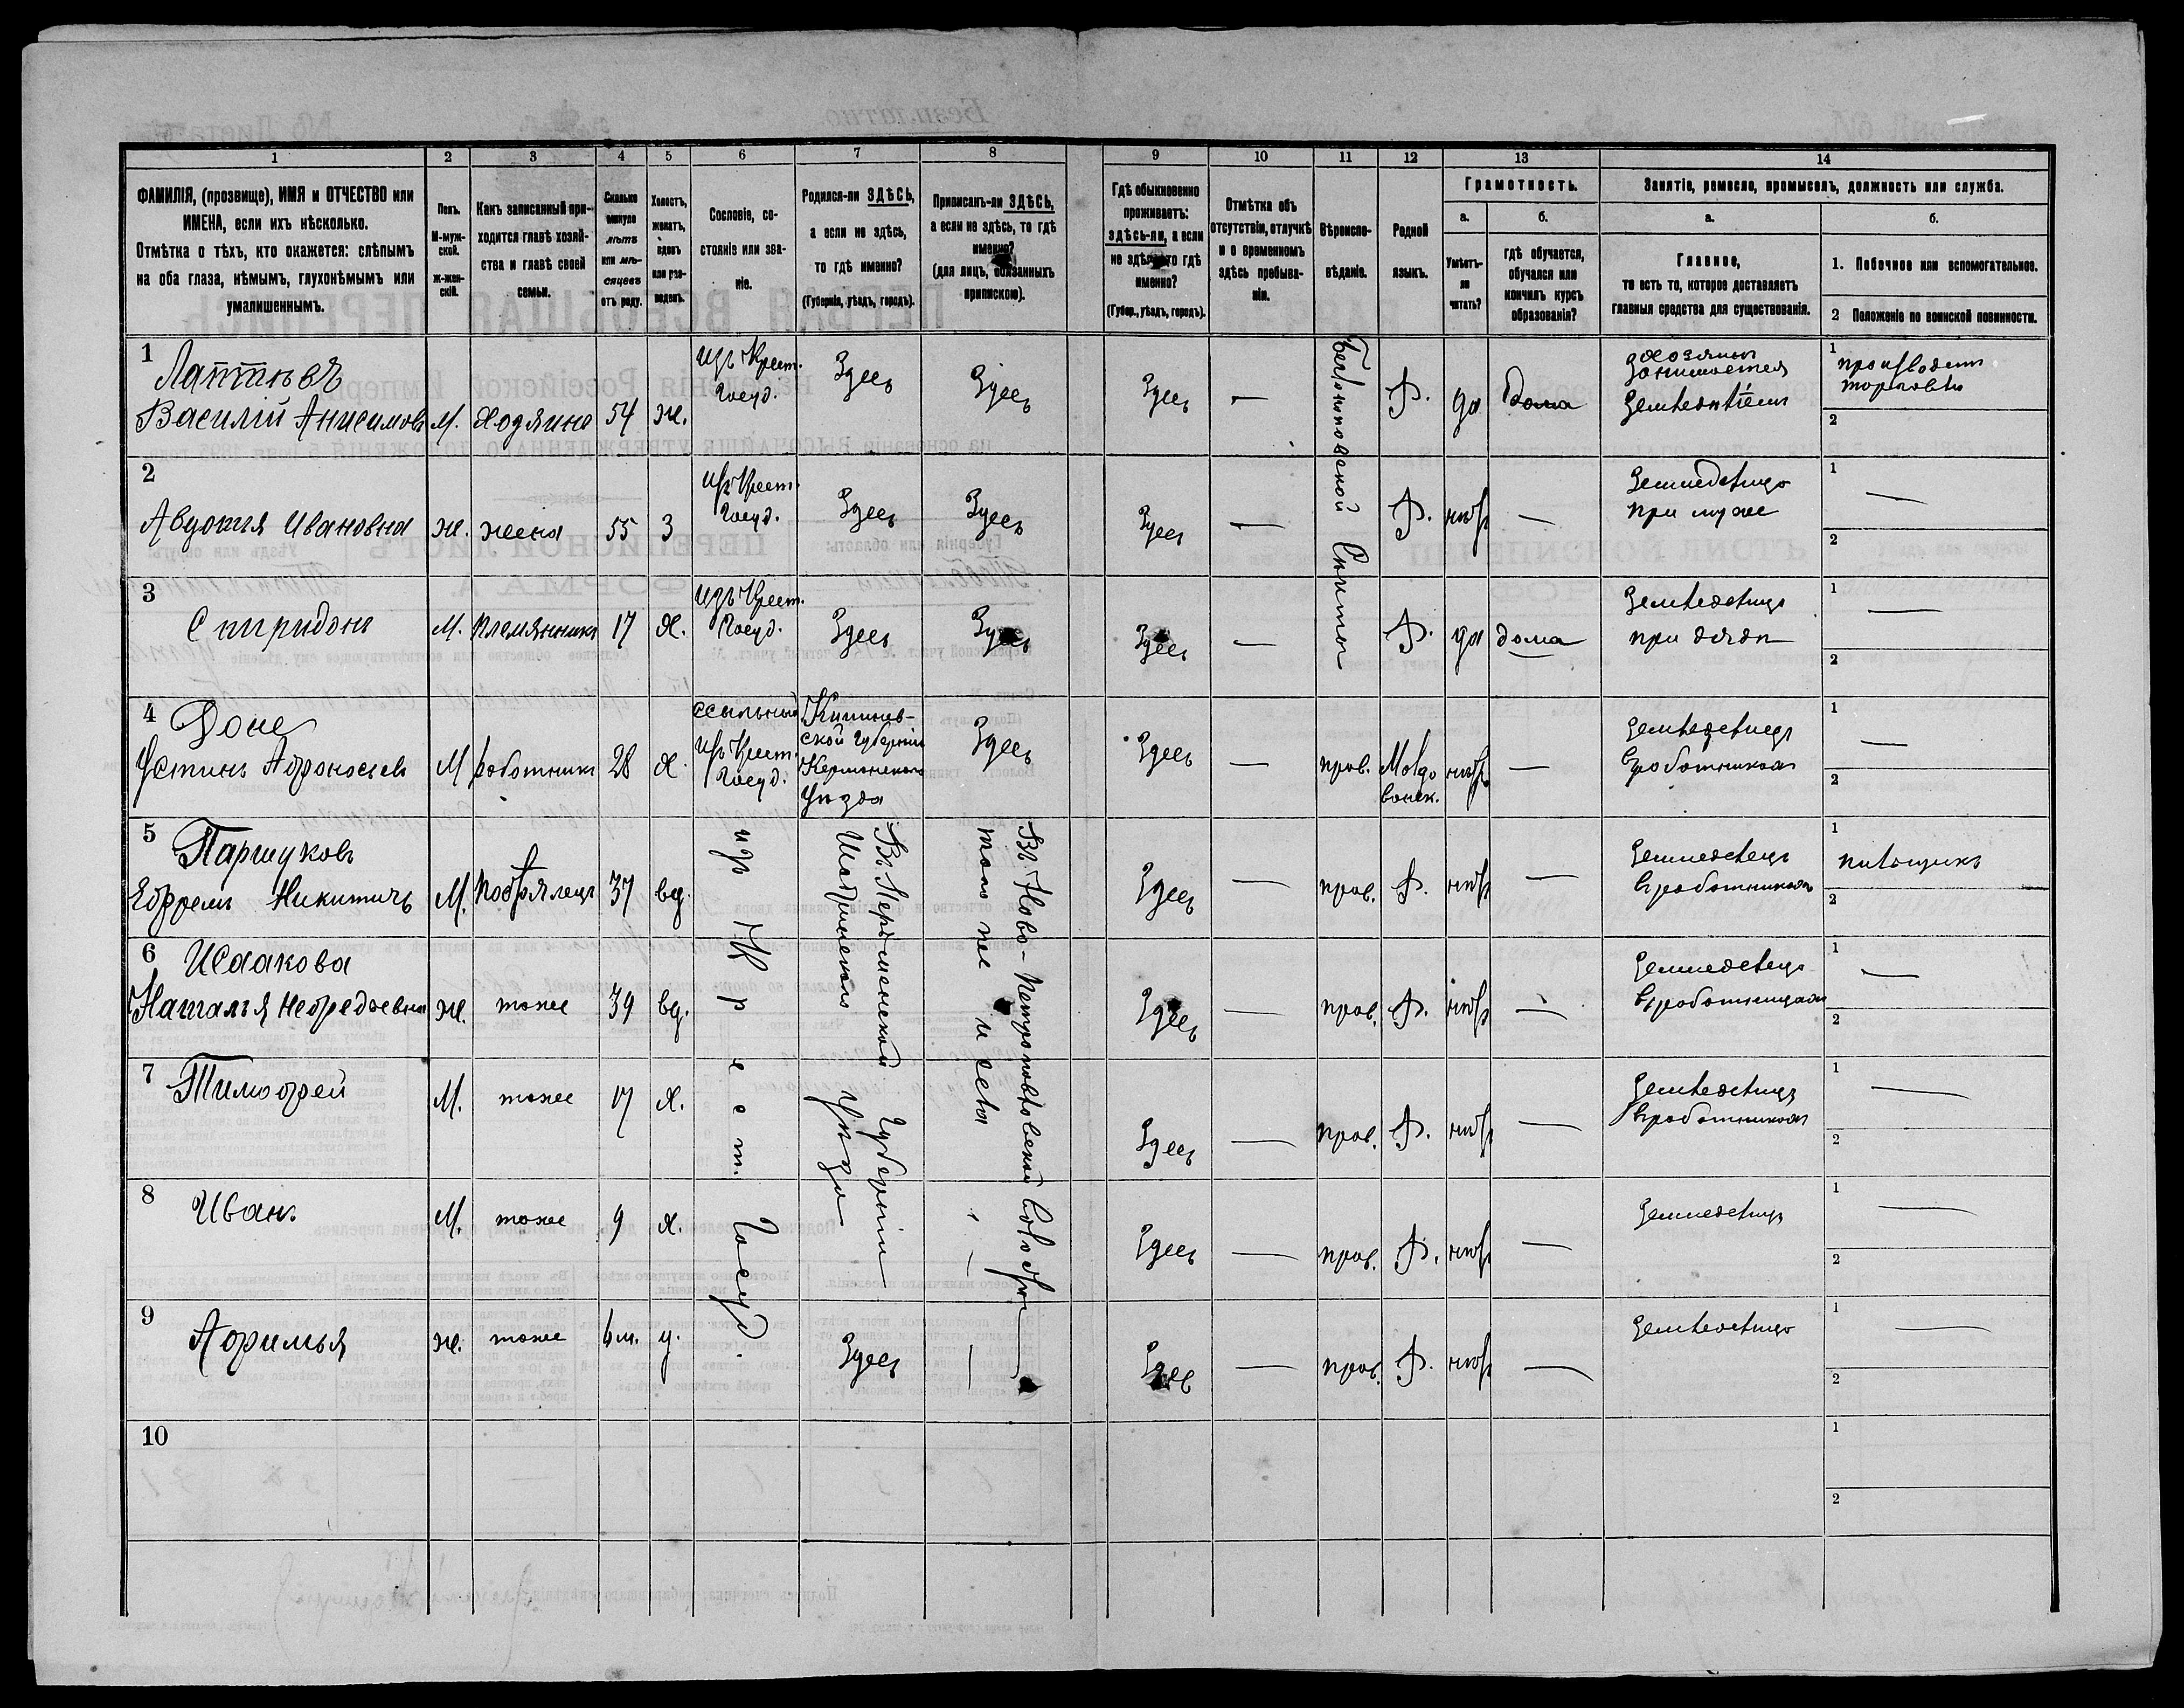 1 2 3 4 5 6 7 8 9 10 11 12 13 14
ФАМИЛІЯ, (прозвище), ИМЯ и ОТЧЕСТВО или
ИМЕНА, если ихъ нѣсколько.
Отмѣтка о тѣхъ, кто окажется: слѣпымъ
на оба глаза, нѣмымъ, глухонѣмымъ или
умалишеннымъ.
Полъ.
М-муж-
ской.
Ж-жен-
скій.
Какъ записанный при-
ходится главѣ хозяй-
ства и главѣ своей
семьи.
Сколько
минуло
лѣтъ
или мѣ-
сяцевъ
отъ роду.
Холостъ,
женатъ,
вдовъ
или раз-
веденъ.
Сословіе, со-
стояніе или зва-
ніе.
Родился-ли ЗДѢСЬ,
а если не здѣсь,
то гдѣ именно?
(Губернія, уѣздъ, городъ).
Приписанъ-ли ЗДѢСЬ,
а если не здѣсь, то гдѣ
именно?
(для лицъ, обязанныхъ
припискою).
Гдѣ обыкновенно
проживаетъ:
здѣсь-ли, а если
не здѣсь, то гдѣ
именно?
(Губер., уѣздъ, городъ).
Отмѣтка объ
отсутствіи, отлучкѣ
и о временномъ
здѣсь пребыва-
ніи.
Вѣроиспо-
вѣданіе.
Родной
языкъ.
Грамотность.
а. б.
Умѣетъ-
ли
читать?
гдѣ обучается,
обучался или
кончилъ курсъ
образованія?
Занятіе, ремесло, промыселъ, должность или служба.
а. б.
Главное,
то есть то, которое доставляетъ
главныя средства для существованія.
1. Побочное или вспомогательное.
2 Положеніе по воинской повинности.
1
Василій Анисимовъ М. Хозяинъ 54 ж.
изъ Крест.
Госуд.
Здесь Здесь Здесь — Р. да дома
Хозяинъ
занимается
земледѣліем
1
производит
торговлю
2
Белокоповской Секты
2
Авдотья Ивановна ж. жена 55 З
изъ Крест.
Госуд.
Здесь Здесь Здесь — Р. нѣтъ —
Земледелица
при муже
1 —
2
3
Спиридонъ М. племянникъ 17 Х.
изъ Крест.
Госуд.
Здесь Здесь Здесь — Р. да дома
Земледелица
при дядѣ
1 —
2
4 Доне
Устинъ Афонасьевъ М работникъ 28 Х
ссыльный
изъ Крест.
Госуд.
Кишинев-
ской губерніи
Уѣзда
Здесь Здесь — прав.
Молдо
ванск.
нѣтъ —
Земледелецъ
в работникахъ
1 —
2
5 Паршуковъ
Ефремъ Никитичъ М. 37 вд.
изъ Крест. Госуд.
Въ Перьменской губерніи
Шадринскаго уѣзда
том же и села
Здесь — прав. Р. нѣтъ —
Земледелецъ
в работникахъ
1 пильщикъ
2
6 Исаакова
Наталья Нефредьевна ж. тоже 39 вд.
Здесь — прав. Р. нѣтъ —
Земледелица
в работницахъ
1 —
2
7 Тимофей М. тоже 17 Х.
Здесь — прав. Р. нѣтъ —
Земледелица
в работникахъ
1 —
2
8 Иванъ М. тоже 9 Х.
Здесь — прав. Р. нѣтъ —
Земледелица
1 —
2
9 Афимья ж. тоже 6м. у.
Здесь — Здесь — прав. Р. нѣтъ —
Земледелица
1 —
2
10
1
2